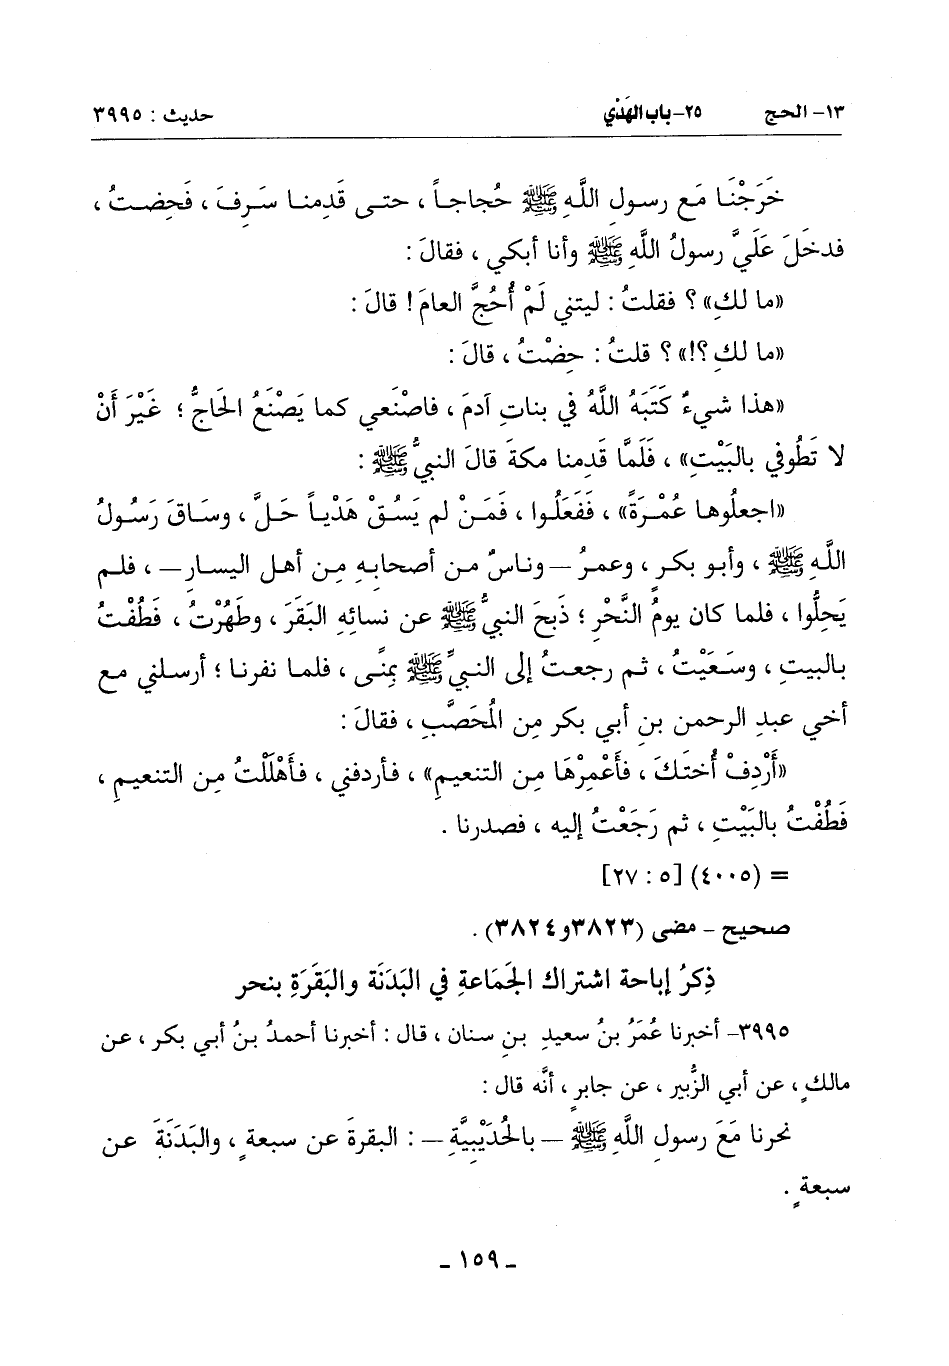 ١٣- الحج ٢٥- باب الهَدْي حديث : ٣٩٩٥
خَرَجْنَا مَع رسولِ اللَّهِ ﷺ حُجاجاً ، حتى قَدِمنا سَرِفَ ، فَحِضتُ ،
فدخَلَ عَلَيَّ رسولُ اللَّهِ ﷺ وأنا أبكي ، فقالَ :
«ما لكِ» ؟ فقلتُ : ليتني لَمْ أَحُجَّ العامَ ! قالَ :
«ما لكِ ؟!» ؟ قلتُ : حِضْتُ ، قالَ :
«هذا شيءٌ كَتَبَهُ اللَّهُ في بناتِ آدمَ ، فاصْنَعي كما يَصْنَعُ الحَاجُّ ؛ غَيْرَ أَنْ
لا تَطُوفي بالبَيْتِ» ، فَلَمَّا قَدِمنا مكةَ قالَ النبيُّ ﷺ :
«اجعلُوها عُمْرَةً» ، فَفَعَلُوا ، فَمَنْ لم يَسُقْ هَدْياً حَلَّ ، وساقَ رَسُولُ
اللَّهِ ﷺ ، وأبو بكرٍ ، وعمرُ — وناسٌ من أصحابِهِ مِن أهلِ اليسارِ — ، فلم
يَحِلُّوا ، فلما كان يومُ النَّحْرِ ؛ ذَبحَ النبيُّ ﷺ عن نسائِهِ البَقَرَ ، وطَهُرْتُ ، فَطُفْتُ
بالبيتِ ، وسَعَيْتُ ، ثم رجعتُ إلى النبيِّ ﷺ بِمنًى ، فلما نفرنا ؛ أرسلني مع
أخي عبدِ الرحمن بنِ أبي بكر مِن المُحَصَّبِ ، فقالَ :
«أَرْدِفْ أُختَكَ ، فَأَعْمِرْهَا مِن التنعيمِ» ، فأردفني ، فَأَهْلَلْتُ مِن التنعيمِ ،
فَطُفْتُ بالبَيْتِ ، ثم رَجَعْتُ إليه ، فصدرنا .
= (٤٠٠٥) [٥ : ٢٧]
صحيح - مضى (٣٨٢٣و٣٨٢٤) .
ذِكرُ إباحة اشتراك الجَمَاعةِ في البَدَنَة والبَقَرَةِ بنحر
٣٩٩٥- أخبرنا عُمَرُ بنُ سعيدِ بنِ سنان ، قال : أخبرنا أحمدُ بنُ أبي بكر ، عن
مالكٍ ، عن أبي الزُّبير ، عن جابرٍ ، أنَّه قال :
نحرنا مَعَ رسولِ اللَّهِ ﷺ — بالحُدَيْبِيَّةِ — : البقرةَ عن سبعةٍ ، والبَدَنَةَ عن
سبعةٍ .
- ١٥٩ -